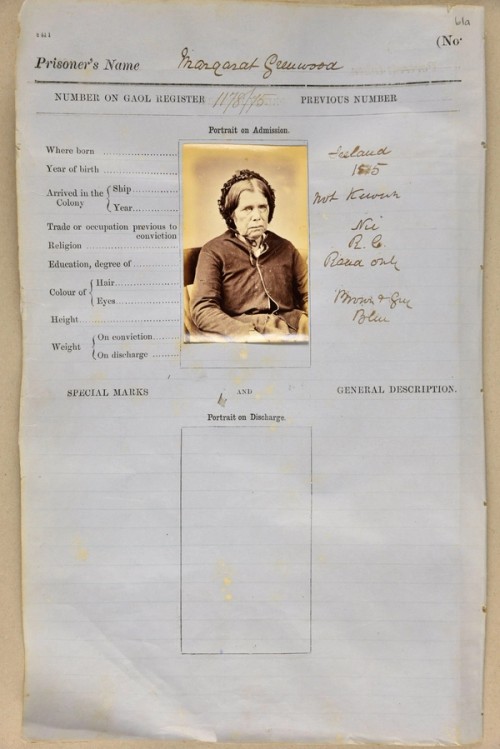 61a
(No.
Prisoner's Name Margaret Greenwood
NUMBER ON GAOL REGISTER 1178/75 PREVIOUS NUMBER
Portrait on Admission.
Where born Ireland
Year of birth
Arrived in the Colony { Ship Not Known
Year
Trade or occupation previous to conviction Nil
Religion R. C.
Education, degree of Read only
Colour of { Hair Brown & Grey
Eyes Blue
Height
Weight { On conviction
On discharge
SPECIAL MARKS AND GENERAL DESCRIPTION.
Portrait on Discharge.